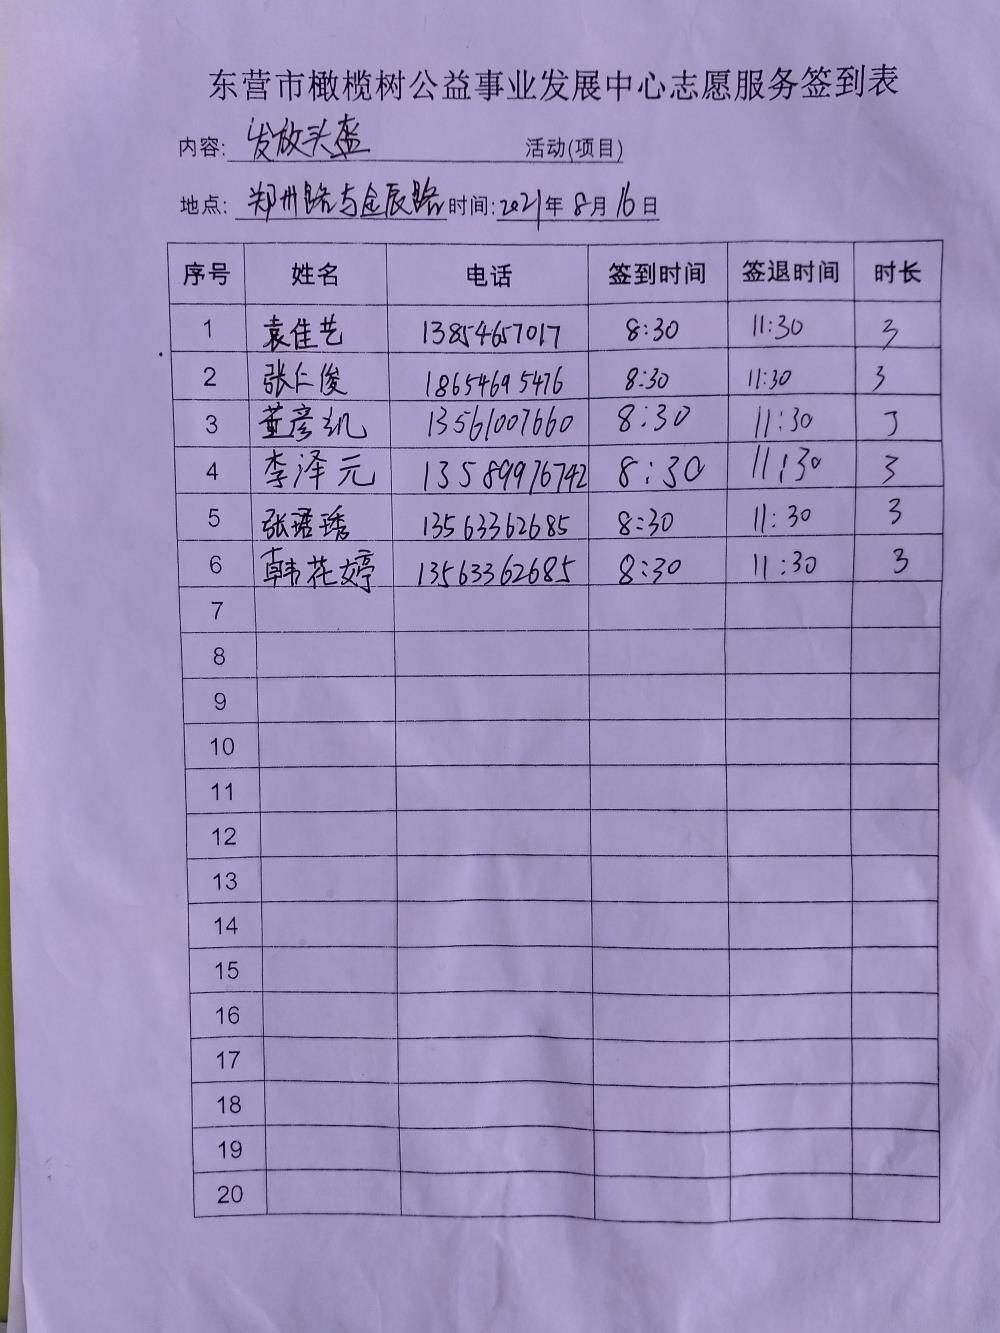 东营市橄榄树公益事业发展中心志愿服务签到表
内容: 发放头盔 活动(项目)
地点: 郑州路与金辰路 时间: 2021年 8月 16日
序号 姓名 电话 签到时间 签退时间 时长
1 袁佳艺 13854657017 8:30 11:30 3
2 张仁俊 18654695476 8:30 11:30 3
3 董彦 13561007660 8:30 11:30 3
4 李泽元 13589976742 8:30 11:30 3
5 张珺琇 13563362685 8:30 11:30 3
6 韩花婷 13563362685 8:30 11:30 3
7
8
9
10
11
12
13
14
15
16
17
18
19
20